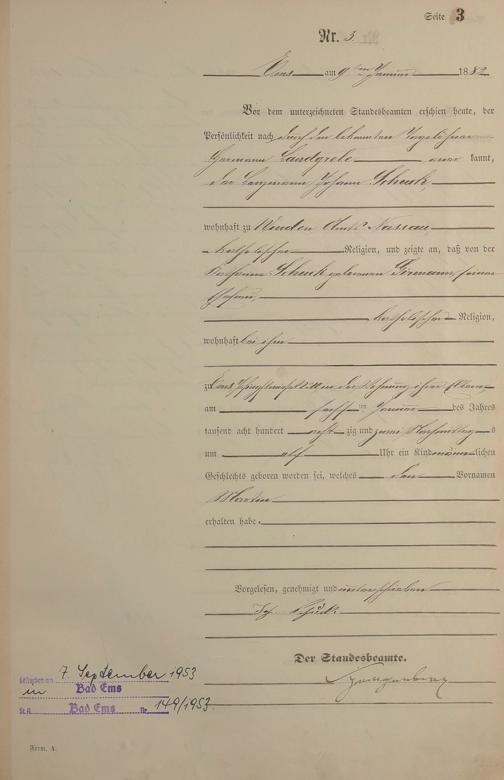 Seite 3
Nr. 3
Ems am 9ten Januar 1882
Vor dem unterzeichneten Standesbeamten erschien heute, der
Persönlichkeit nach durch den bekannten Tagelöhner
Hermann Landgrebe aner kannt,
der Bergmann Johann Schuck
wohnhaft zu Winden Amt Nassau
katholischer Religion, und zeigte an, daß von der
Katharina Schuck geborenen Hermann, seiner
Ehefrau,
katholischer Religion,
wohnhaft bei ihm
zu Ems in der Wohnung ihrer Eltern
am sechsten Januar des Jahres
tausend acht hundert acht zig und zwei Nachmittags
um elf Uhr ein Kind männlichen
Geschlechts geboren worden sei, welches den Vornamen
Martin
erhalten habe.
Vorgelesen, genehmigt und unterschrieben
Joh. Schuck
Der Standesbeamte.
gestorben am 7. September 1953
in Bad Ems
St. A. Bad Ems Nr. 149/1953.
Form. A.